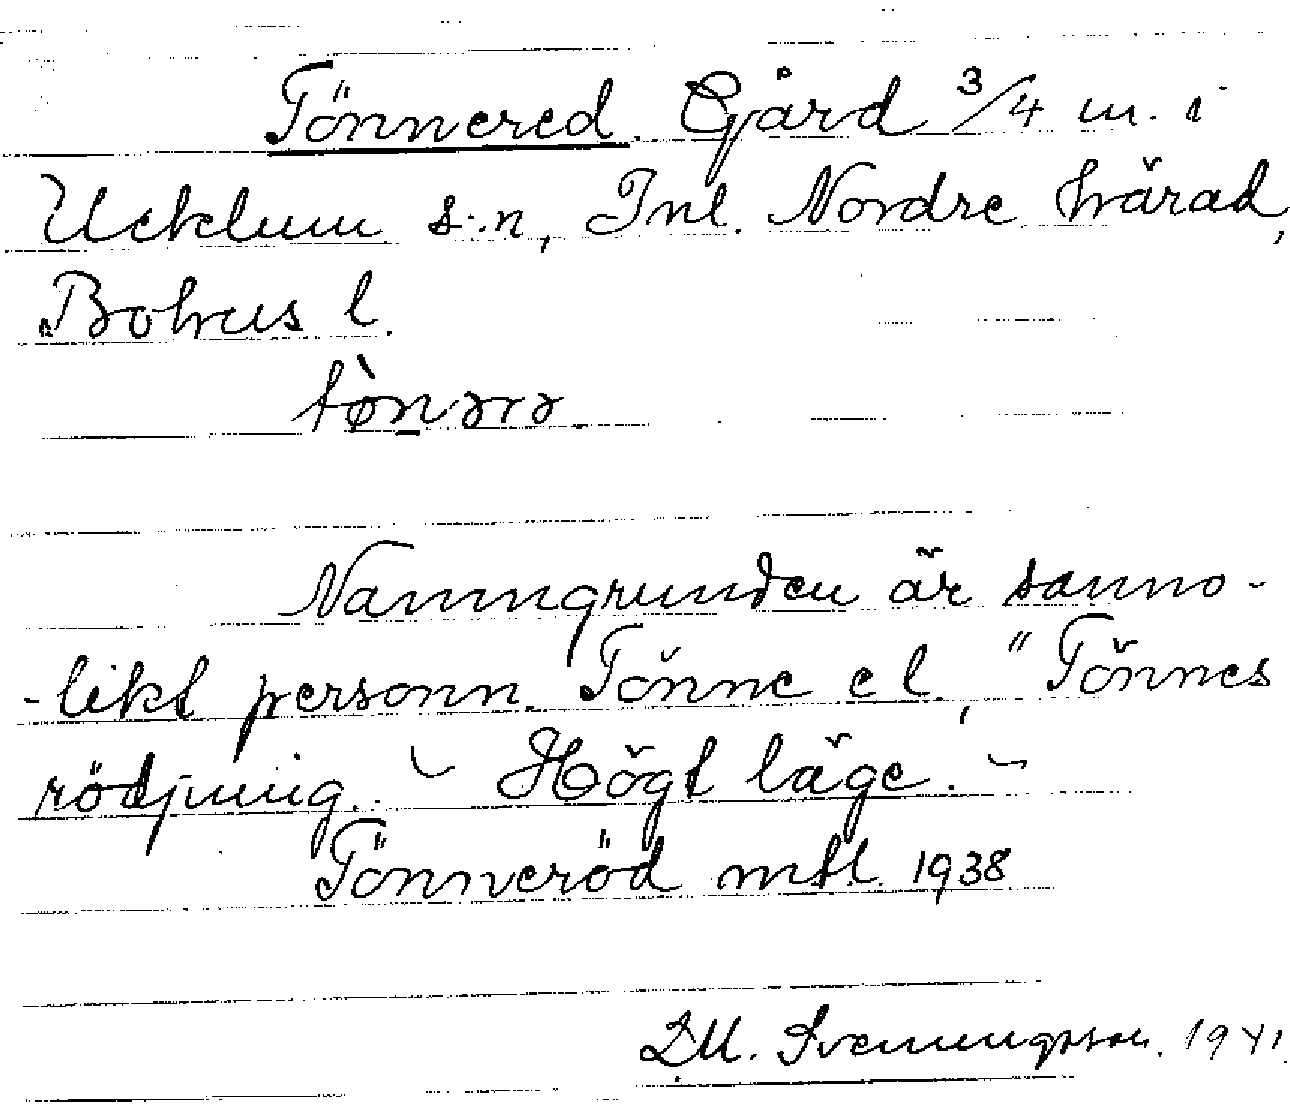 Tönnered. Gård 3/4 m. i
Ucklum s:n, Inl. Nordre härad,
Bohus l.
tø̀nərə
Namngrunden är sanno-
-likt personn. Tönne el. "Tönnes
rödjning. - Högt läge. -
Tönneröd mtl. 1938
D.M. Svenningsson. 1941